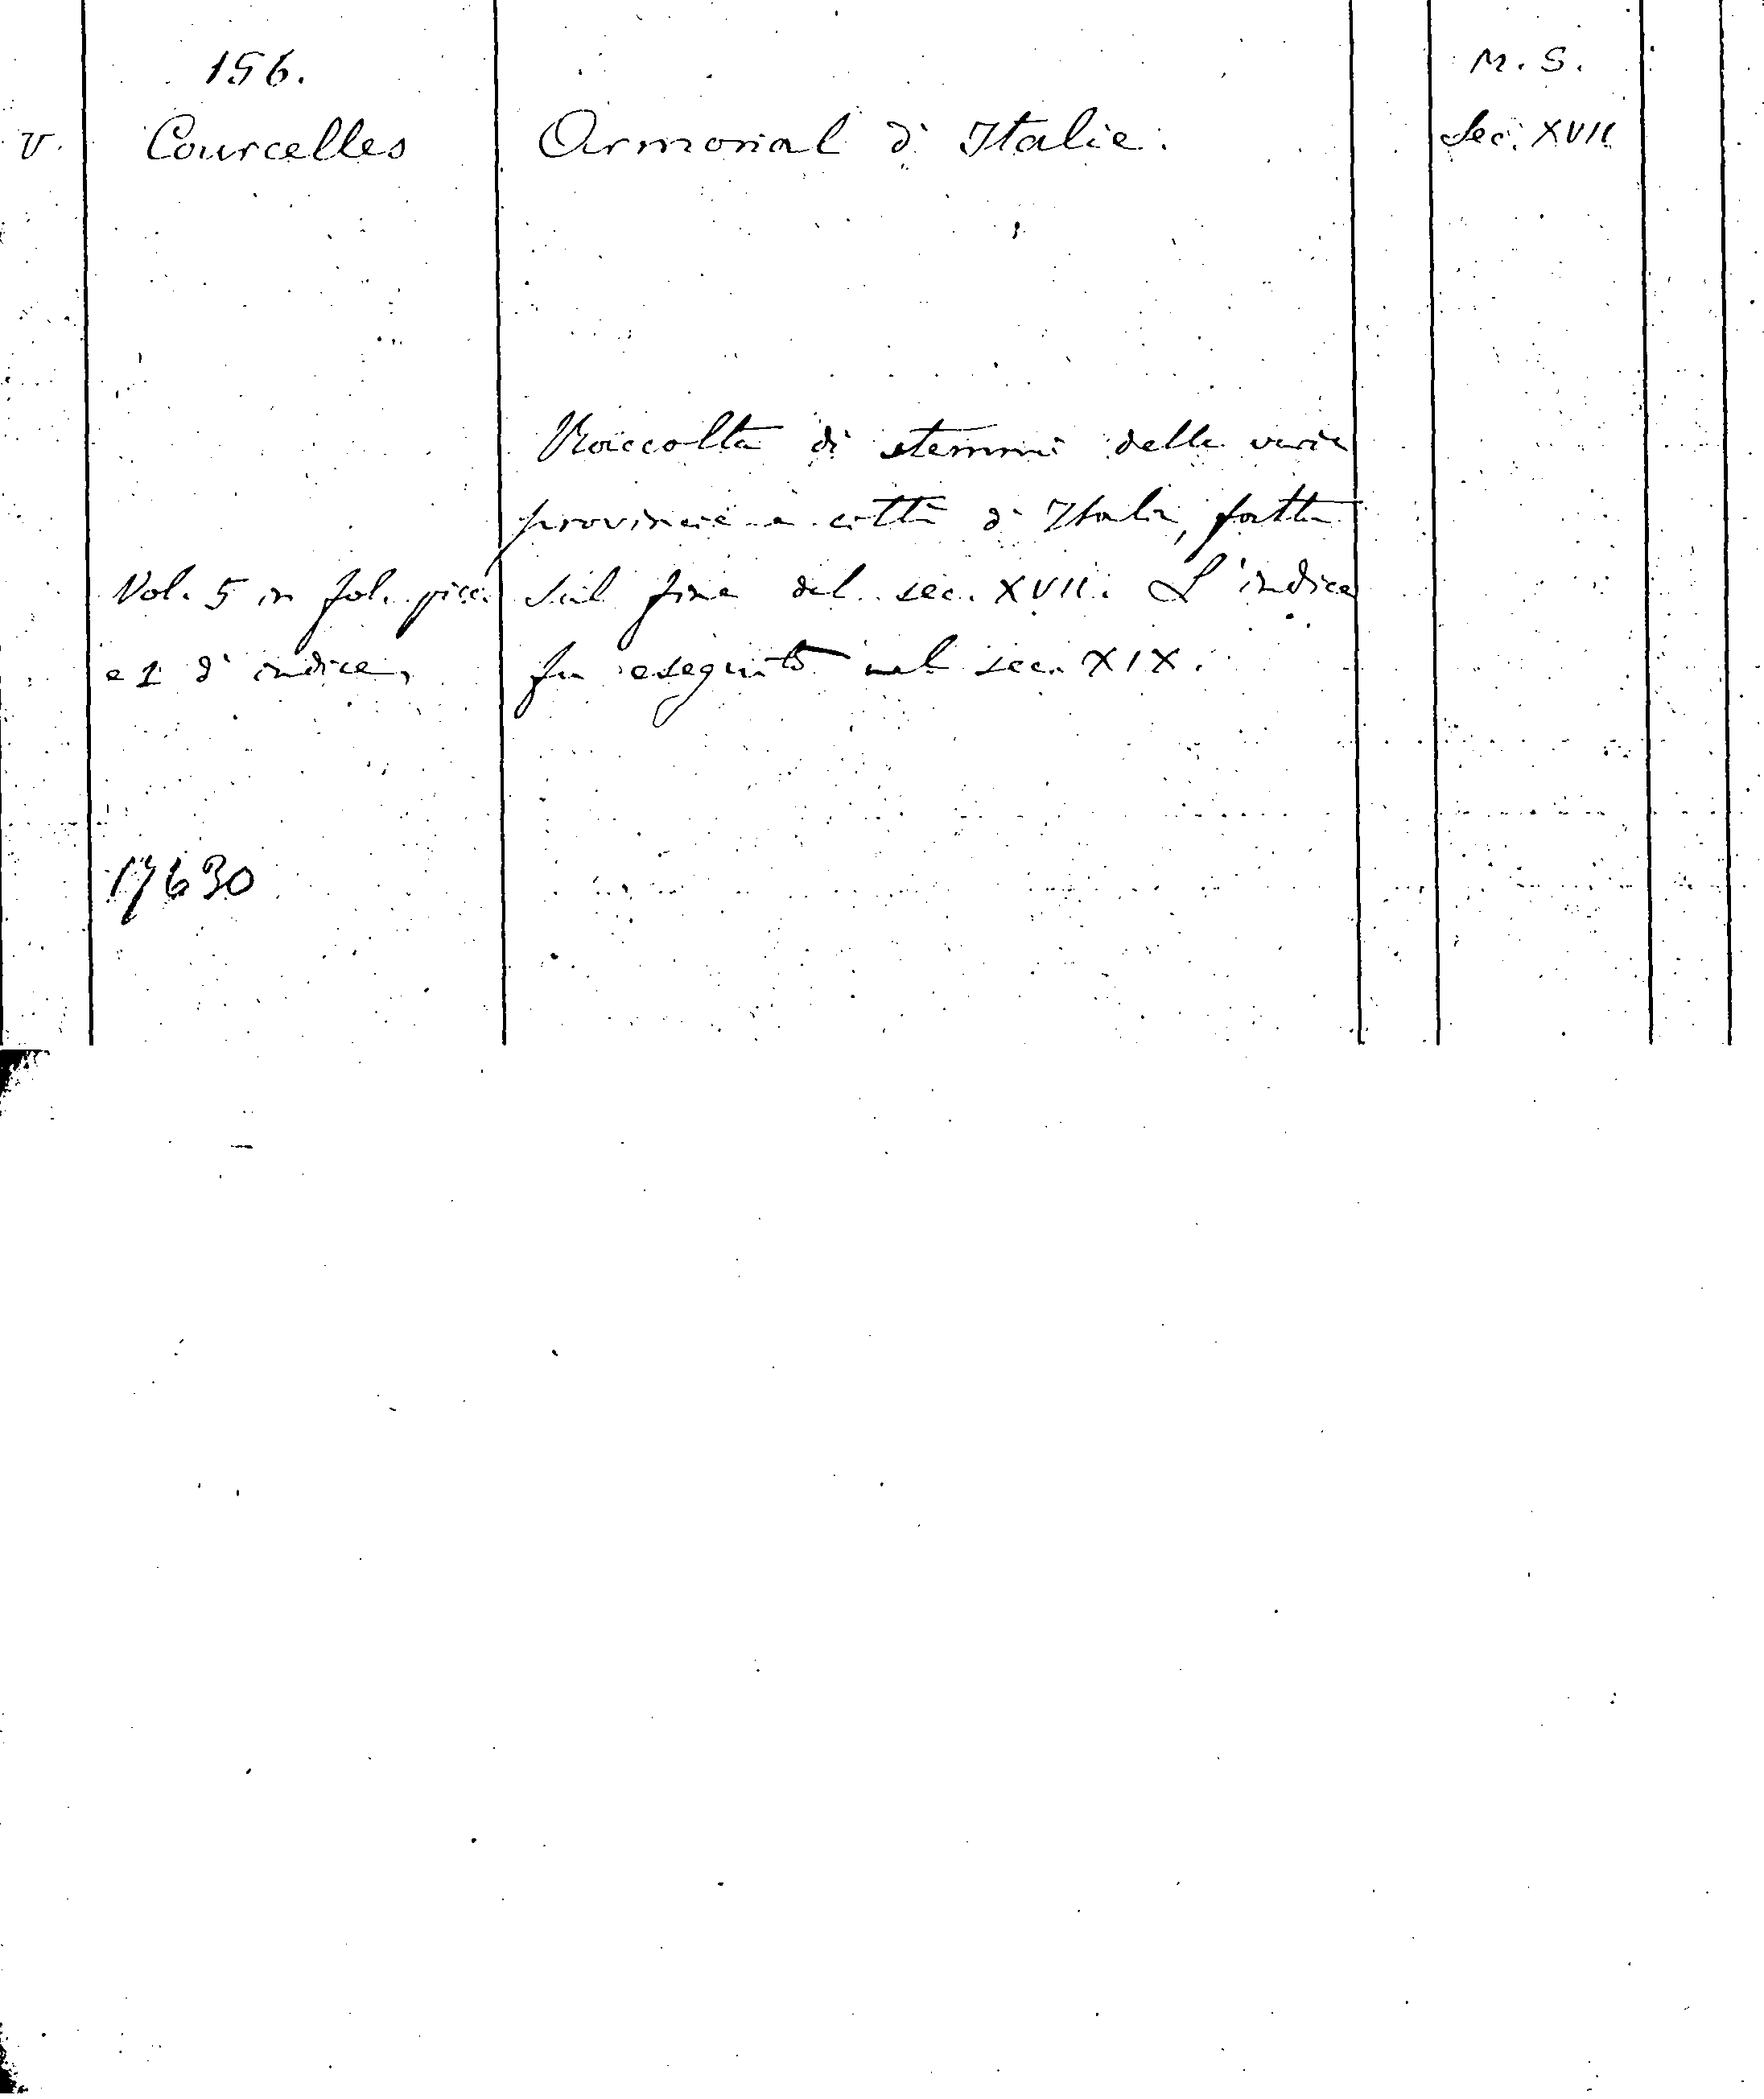 156.
M. S.
V.
Courcelles
Armorial d'Italie.
Sec. XVII
Raccolta di stemmi delle varie
provincie e città d'Italia, fatta
Vol. 5 in fol. picc.
sul fine del sec. XVII. L'indice
e 1 d'indice,
fu eseguito nel sec. XIX.
17630